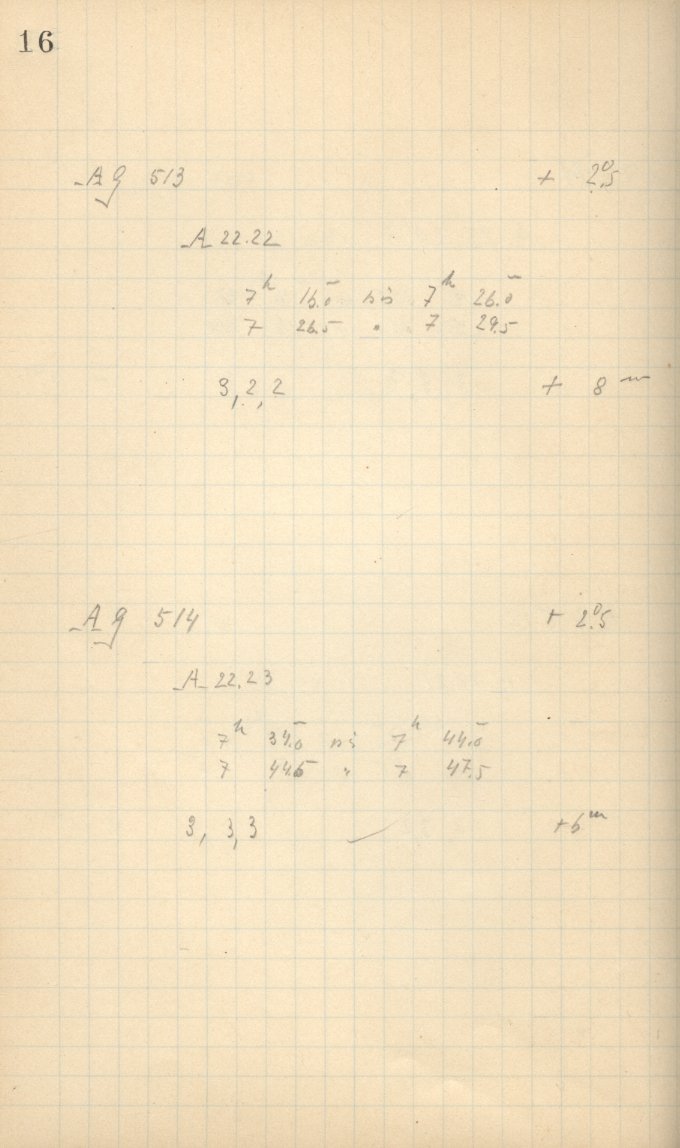 16
Ag 513 + 2°.5
A 22.22
7h 16.0m bis 7h 26.0m
7 26.5 " 7 29.5
3, 2, 2 + 8m
Ag 514 + 2°.5
A 22.23
7h 34.0m bis 7h 44.0m
7 44.5 " 7 47.5
3, 3, 3 +6m